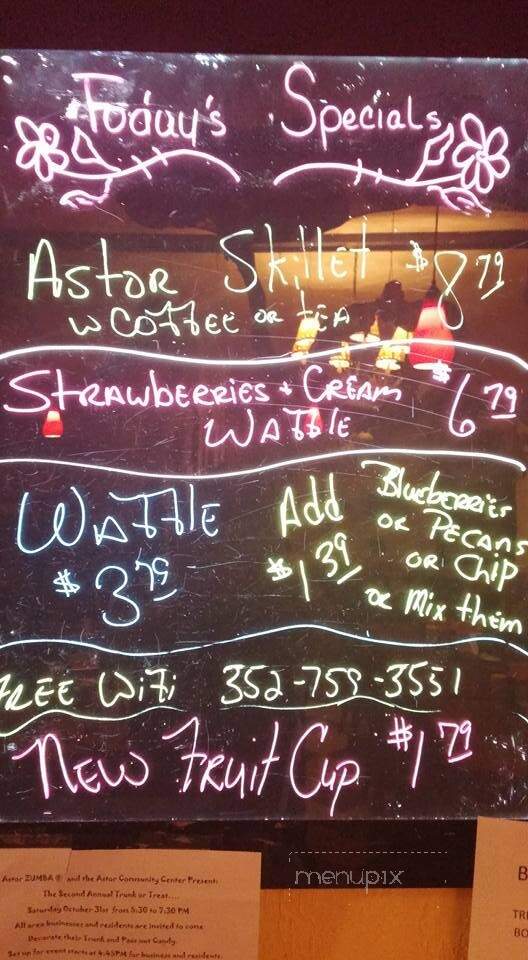 Today's Specials
Astor Skillet $8.79
w Coffee or tea
Strawberries + Cream $6.79
Waffle
Waffle Add Blueberries
or Pecans
$3.79 $1.39 or Chip
or Mix them
Free WiFi 352-759-3551
New Fruit Cup $1.79
menupix
Astor ZUMBA ® and the Astor Community Center Present:
The Second Annual Trunk or Treat....
Saturday October 31st from 5:30 to 7:30 PM
All area businesses and residents are invited to come
Decorate their Trunk and Pass out Candy.
Set up for event starts at 4:45PM for business and residents.
B
TRE
BO